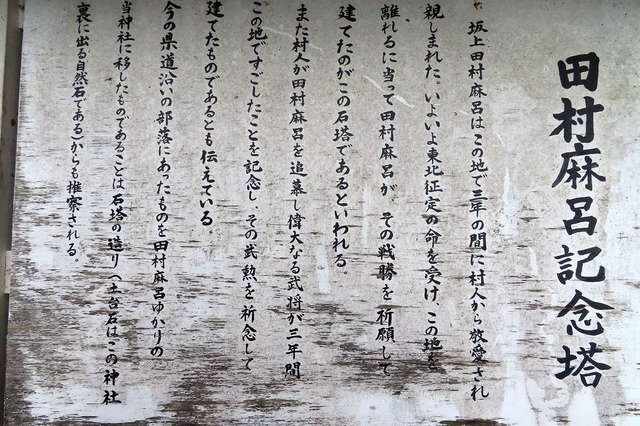 田村麻呂記念塔
坂上田村麻呂はこの地で三年の間に村人から敬愛され
親しまれた、いよいよ東北征定の命を受け、この地を
離れるに当って田村麻呂が、その戦勝を祈願して
建てたのがこの石塔であるといわれる
また村人が田村麻呂を追慕し偉大なる武将が三年間
この地ですごしたことを記念し、その武勲を祈念して
建てたものであるとも伝えている。
今の県道沿いの部落にあったものを田村麻呂ゆかりの
当神社に移したものであることは石塔の造り（土台石はこの神社
裏に出る自然石である）からも推察される。